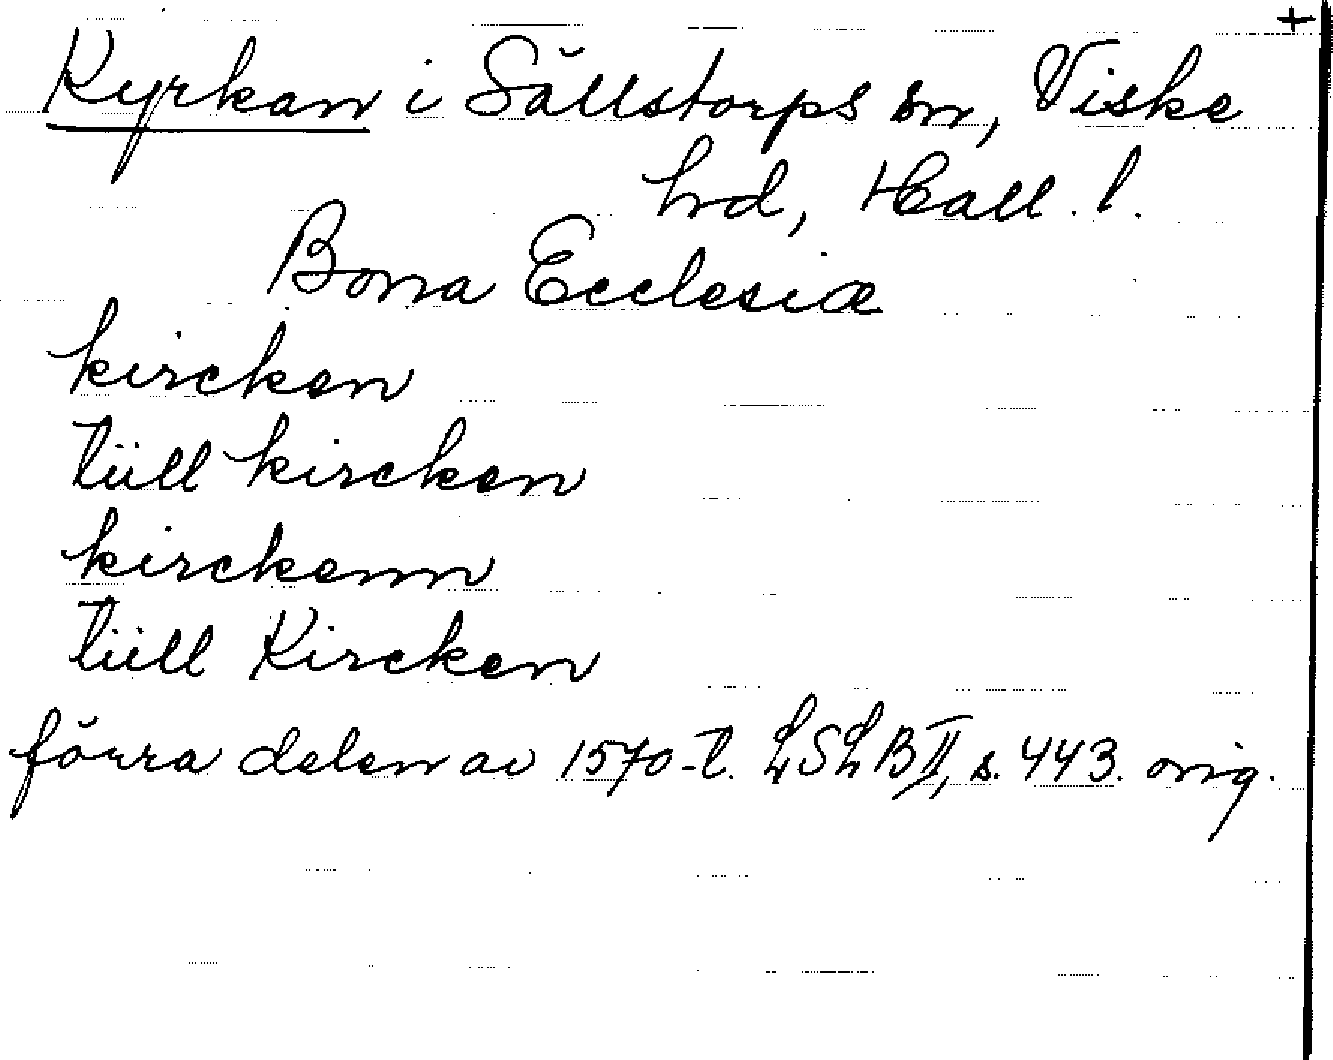 +
Kyrkan i Sällstorps sn, Viske
hrd, Hall. l.
Bona Ecclesiæ
kircken
tüll kircken
kirckenn
tüll Kircken
förra delen av 1570-t. LSLB II, s. 443. orig.